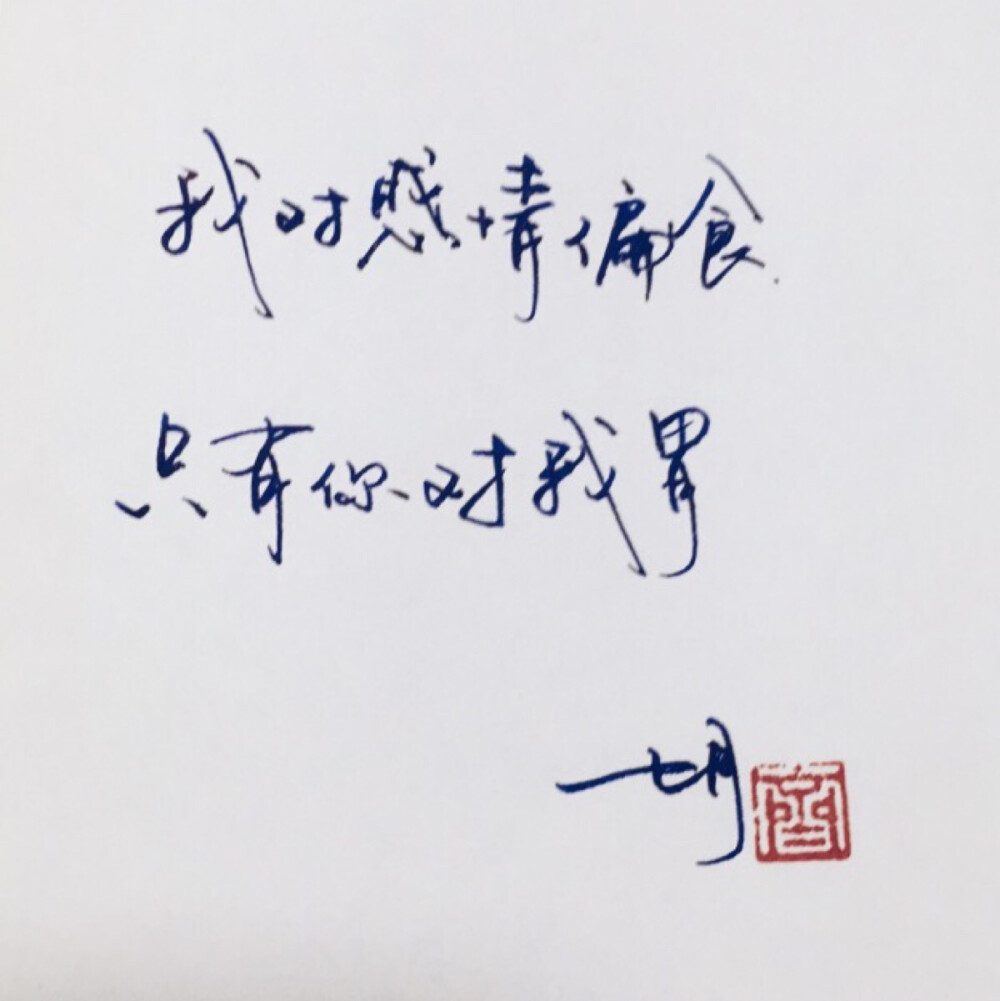 我对感情偏食
只有你对我胃
七月